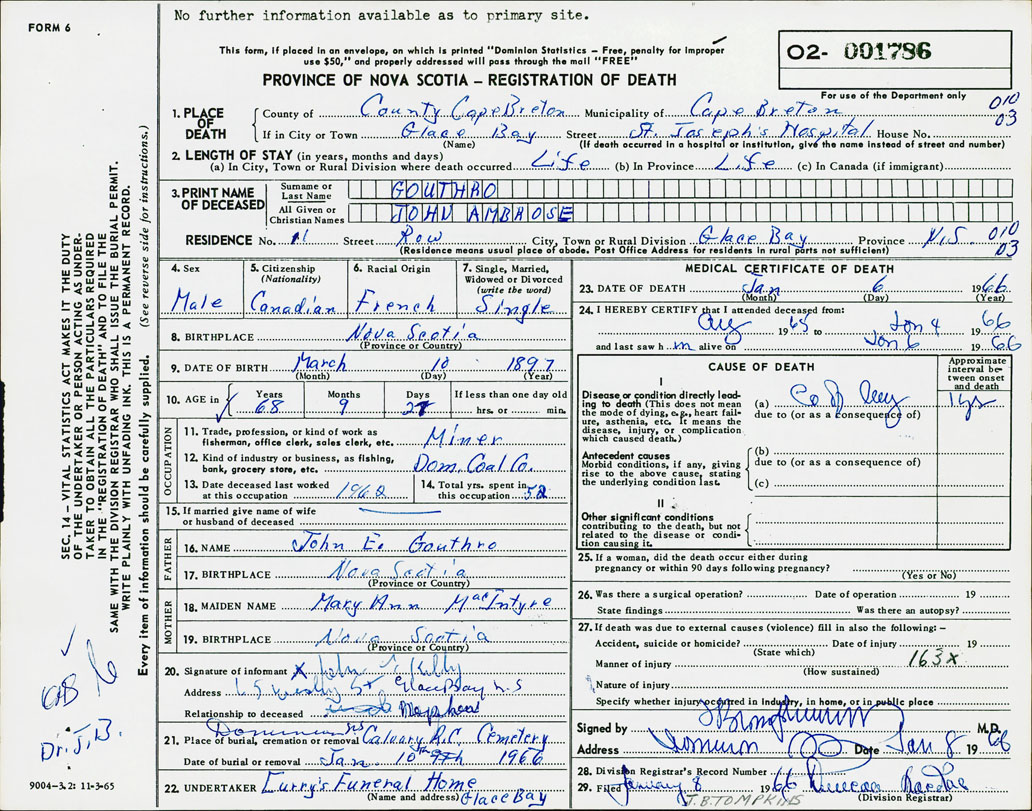 No further information available as to primary site.
FORM 6
This form, if placed in an envelope, on which is printed "Dominion Statistics – Free, penalty for improper
use $50," and properly addressed will pass through the mail "FREE"
O2- 001786
PROVINCE OF NOVA SCOTIA – REGISTRATION OF DEATH
For use of the Department only
1. PLACE OF DEATH
County of County Cape Breton Municipality of Cape Breton 010
If in City or Town Glace Bay Street St. Joseph's Hospital House No. 03
(Name) (If death occurred in a hospital or institution, give the name instead of street and number)
2. LENGTH OF STAY (in years, months and days)
(a) In City, Town or Rural Division where death occurred Life (b) In Province Life (c) In Canada (if immigrant)
3. PRINT NAME OF DECEASED
Surname or Last Name GOUTHRO
All Given or Christian Names JOHN AMBROSE
RESIDENCE No. 11 Street Row City, Town or Rural Division Glace Bay Province N.S. 010
(Residence means usual place of abode. Post Office Address for residents in rural parts not sufficient) 03
4. Sex Male
5. Citizenship (Nationality) Canadian
6. Racial Origin French
7. Single, Married, Widowed or Divorced (write the word) Single
8. BIRTHPLACE Nova Scotia
(Province or Country)
9. DATE OF BIRTH March 10 1897
(Month) (Day) (Year)
10. AGE in Years 68 Months 9 Days 27 If less than one day old hrs. or min.
OCCUPATION
11. Trade, profession, or kind of work as
fisherman, office clerk, sales clerk, etc. Miner
12. Kind of industry or business, as fishing,
bank, grocery store, etc. Dom. Coal Co.
13. Date deceased last worked
at this occupation 1962
14. Total yrs. spent in
this occupation 52
15. If married give name of wife
or husband of deceased
FATHER
16. NAME John E. Gouthro
17. BIRTHPLACE Nova Scotia
(Province or Country)
MOTHER
18. MAIDEN NAME Mary Ann MacIntyre
19. BIRTHPLACE Nova Scotia
(Province or Country)
20. Signature of informant X John
Address St Glace Bay N.S
Relationship to deceased Nephew
21. Place of burial, cremation or removal Calvary R.C. Cemetery
Date of burial or removal Jan. 10th 9th 1966
22. UNDERTAKER Curry's Funeral Home
(Name and address) Glace Bay
MEDICAL CERTIFICATE OF DEATH
23. DATE OF DEATH Jan 6 1966
(Month) (Day) (Year)
24. I HEREBY CERTIFY that I attended deceased from:
Aug 1965 to Jan 4 1966
and last saw h im alive on Jan 6 1966
CAUSE OF DEATH
Approximate interval between onset and death
I
Disease or condition directly leading to death (This does not mean
the mode of dying, e.g., heart failure, asthenia, etc. It means the
disease, injury, or complication
which caused death.)
(a) Ca of lung 1 yr
due to (or as a consequence of)
Antecedent causes
Morbid conditions, if any, giving
rise to the above cause, stating
the underlying condition last.
(b)
due to (or as a consequence of)
(c)
II
Other significant conditions
contributing to the death, but not
related to the disease or condition causing it.
25. If a woman, did the death occur either during
pregnancy or within 90 days following pregnancy?
(Yes or No)
26. Was there a surgical operation? Date of operation 19
State findings Was there an autopsy?
27. If death was due to external causes (violence) fill in also the following: –
Accident, suicide or homicide? Date of injury 19
(State which)
Manner of injury 163X
(How sustained)
Nature of injury
Specify whether injury occurred in industry, in home, or in public place
Signed by M.D.
Address Dominion Date Jan 8 1966
28. Division Registrar's Record Number
29. Filed January 8 1966
(Division Registrar)
J.B. TOMPKINS
SEC. 14 – VITAL STATISTICS ACT MAKES IT THE DUTY
OF THE UNDERTAKER OR PERSON ACTING AS UNDER-
TAKER TO OBTAIN ALL THE PARTICULARS REQUIRED
IN THE "REGISTRATION OF DEATH" AND TO FILE THE
SAME WITH THE DIVISION REGISTRAR WHO SHALL ISSUE THE BURIAL PERMIT.
WRITE PLAINLY WITH UNFADING INK. THIS IS A PERMANENT RECORD.
Every item of information should be carefully supplied. (See reverse side for instructions.)
Dr. J.B.
9004–3.2: 11-3-65